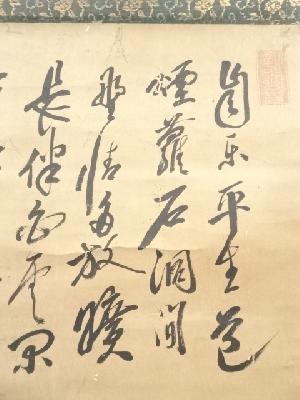 自樂平生道
煙蘿石洞間
野情多放曠
長伴白雲閑